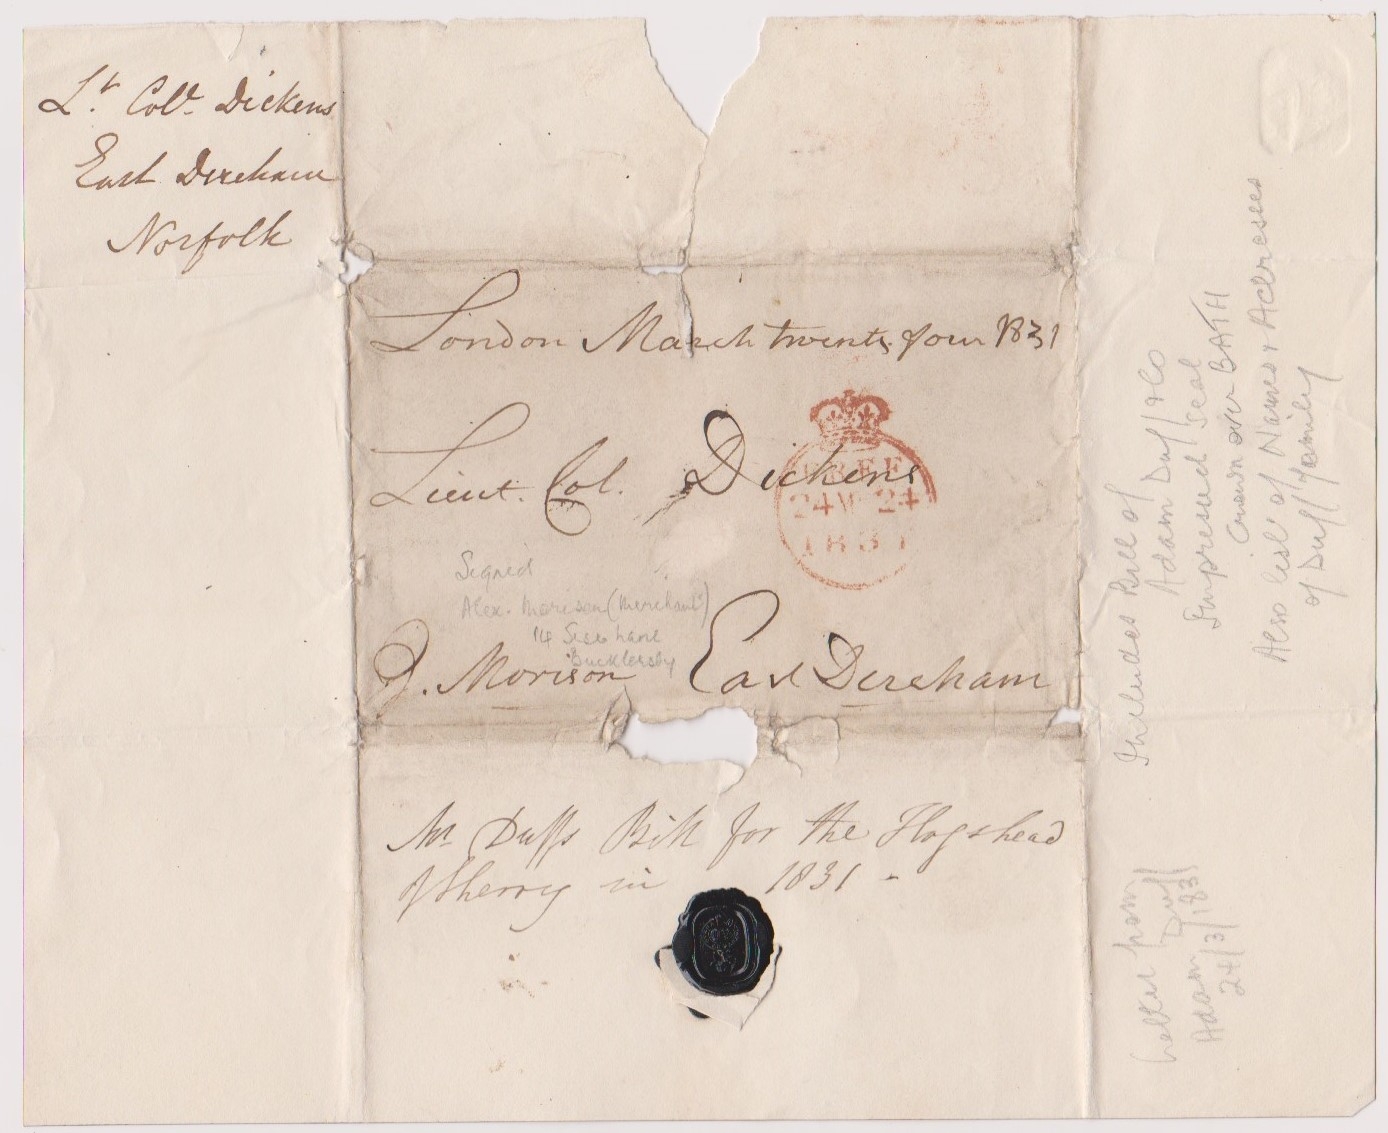 Lt. Coll. Dickens
East Dereham
Norfolk
London March twenty four 1831
Lieut. Col. Dickens
East Dereham
J. Morison
FREE
24 M 24
1831
Signed
Alex. Morison (Merchant)
14 Sise Lane
Bucklersby
Mr Duffs Bill for the Hogshead
of Sherry in 1831 -
Includes Bill of
Adam Duff & Co
Impressed Seal
Crown over BATH
Also list of Names & Adresses
of Duff Family
Letter from
Adam Duff
24/3/1831